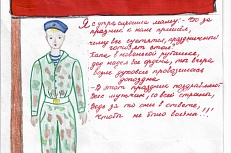 Я с утра спросила маму:- "Что за
праздник к нам пришёл,
почему все суетятся, празднично
готовят стол?"
Папа в новенькой рубашке,
дед надел все ордена, ты вчера
возле духовки провозилась
допоздна.
- В этот праздник поздравляют
всех мужчин, со всей страны,
Ведь за то они в ответе,
Чтобы не было войны...!